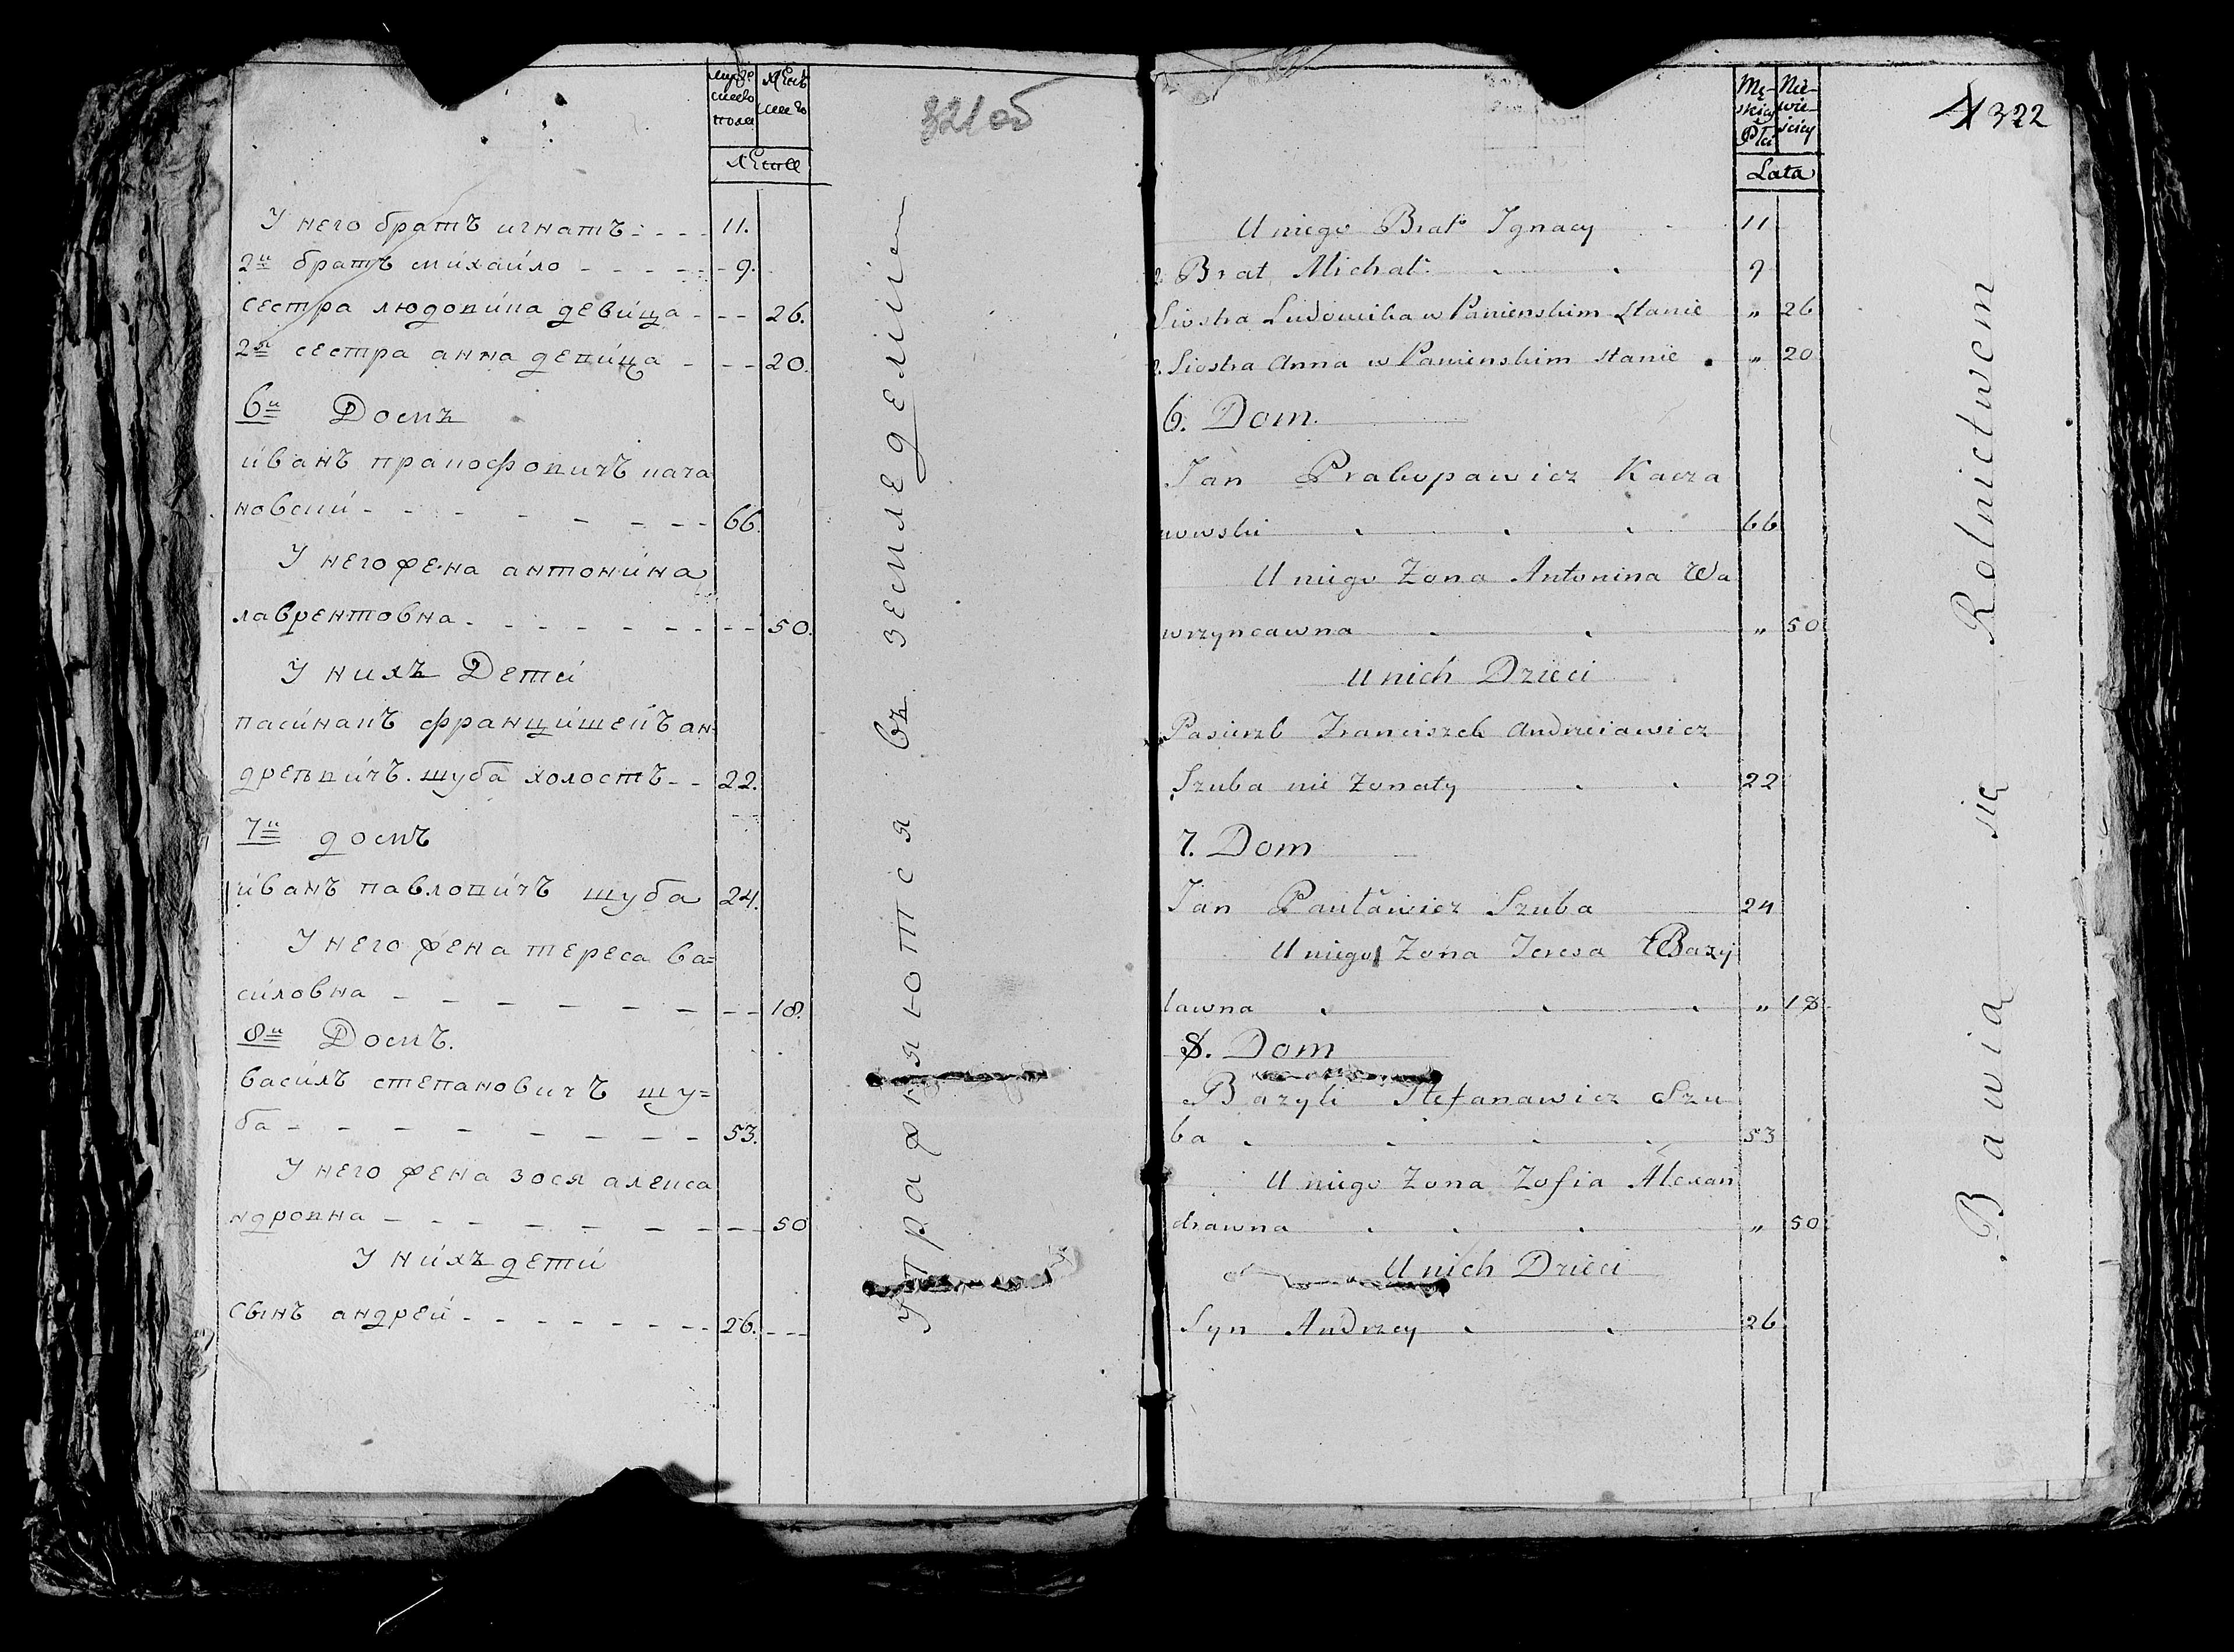 мужескаго пола
женскаго
Лета
321 об
У него братъ игнатъ 11.
2й братъ михайло 9.
сестра людовика девица 26.
2я сестра анна девица 20.
6й Домъ
иванъ пракофовичъ кача
новский 66.
У него жена антонина
лаврентовна 50.
У нихъ Дети
пасинакъ францишекъ ан=
дреевичъ шуба холостъ 22.
7й домъ
иванъ павловичъ шуба 24.
У него жена тереса ва=
силовна 18.
8й Домъ.
василь степановичъ шу=
ба 53.
У него жена зося алекса
ндровна 50
У нихъ дети
сынъ андрей 26.
упражняются въ земледелии
Męskiey Płci
Niewieściey
Lata
322
U niego Brat Ignacy 11
2. Brat Michał 9
Siostra Ludowika w Panienskim stanie „ 26
2. Siostra Anna w Panienskim stanie „ 20
6. Dom
Jan Prakopawicz Kacza
nowski 66
U niego Zona Antonina Wa
wrzyncawna „ 50
U nich Dzieci
Pasierzb Franciszek Andrzeiawicz
Szuba nie Zonaty 22
7. Dom
Jan Pauławicz Szuba 24
U niego Zona Teresa Bazy
lawna „ 18
8. Dom
Bazyli Stefanawicz Szu
ba 53
U niego Zona Zofia Alexan
drawna „ 50
U nich Dzieci
Syn Andrzey 26
Bawią się Rolnictwem